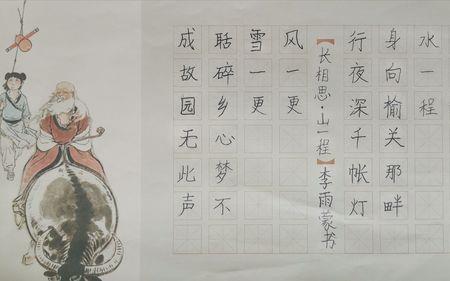 水一程
身向榆关那畔
行夜深千帐灯
【长相思·山一程】李雨蒙书
风一更
雪一更
聒碎乡心梦不
成故园无此声